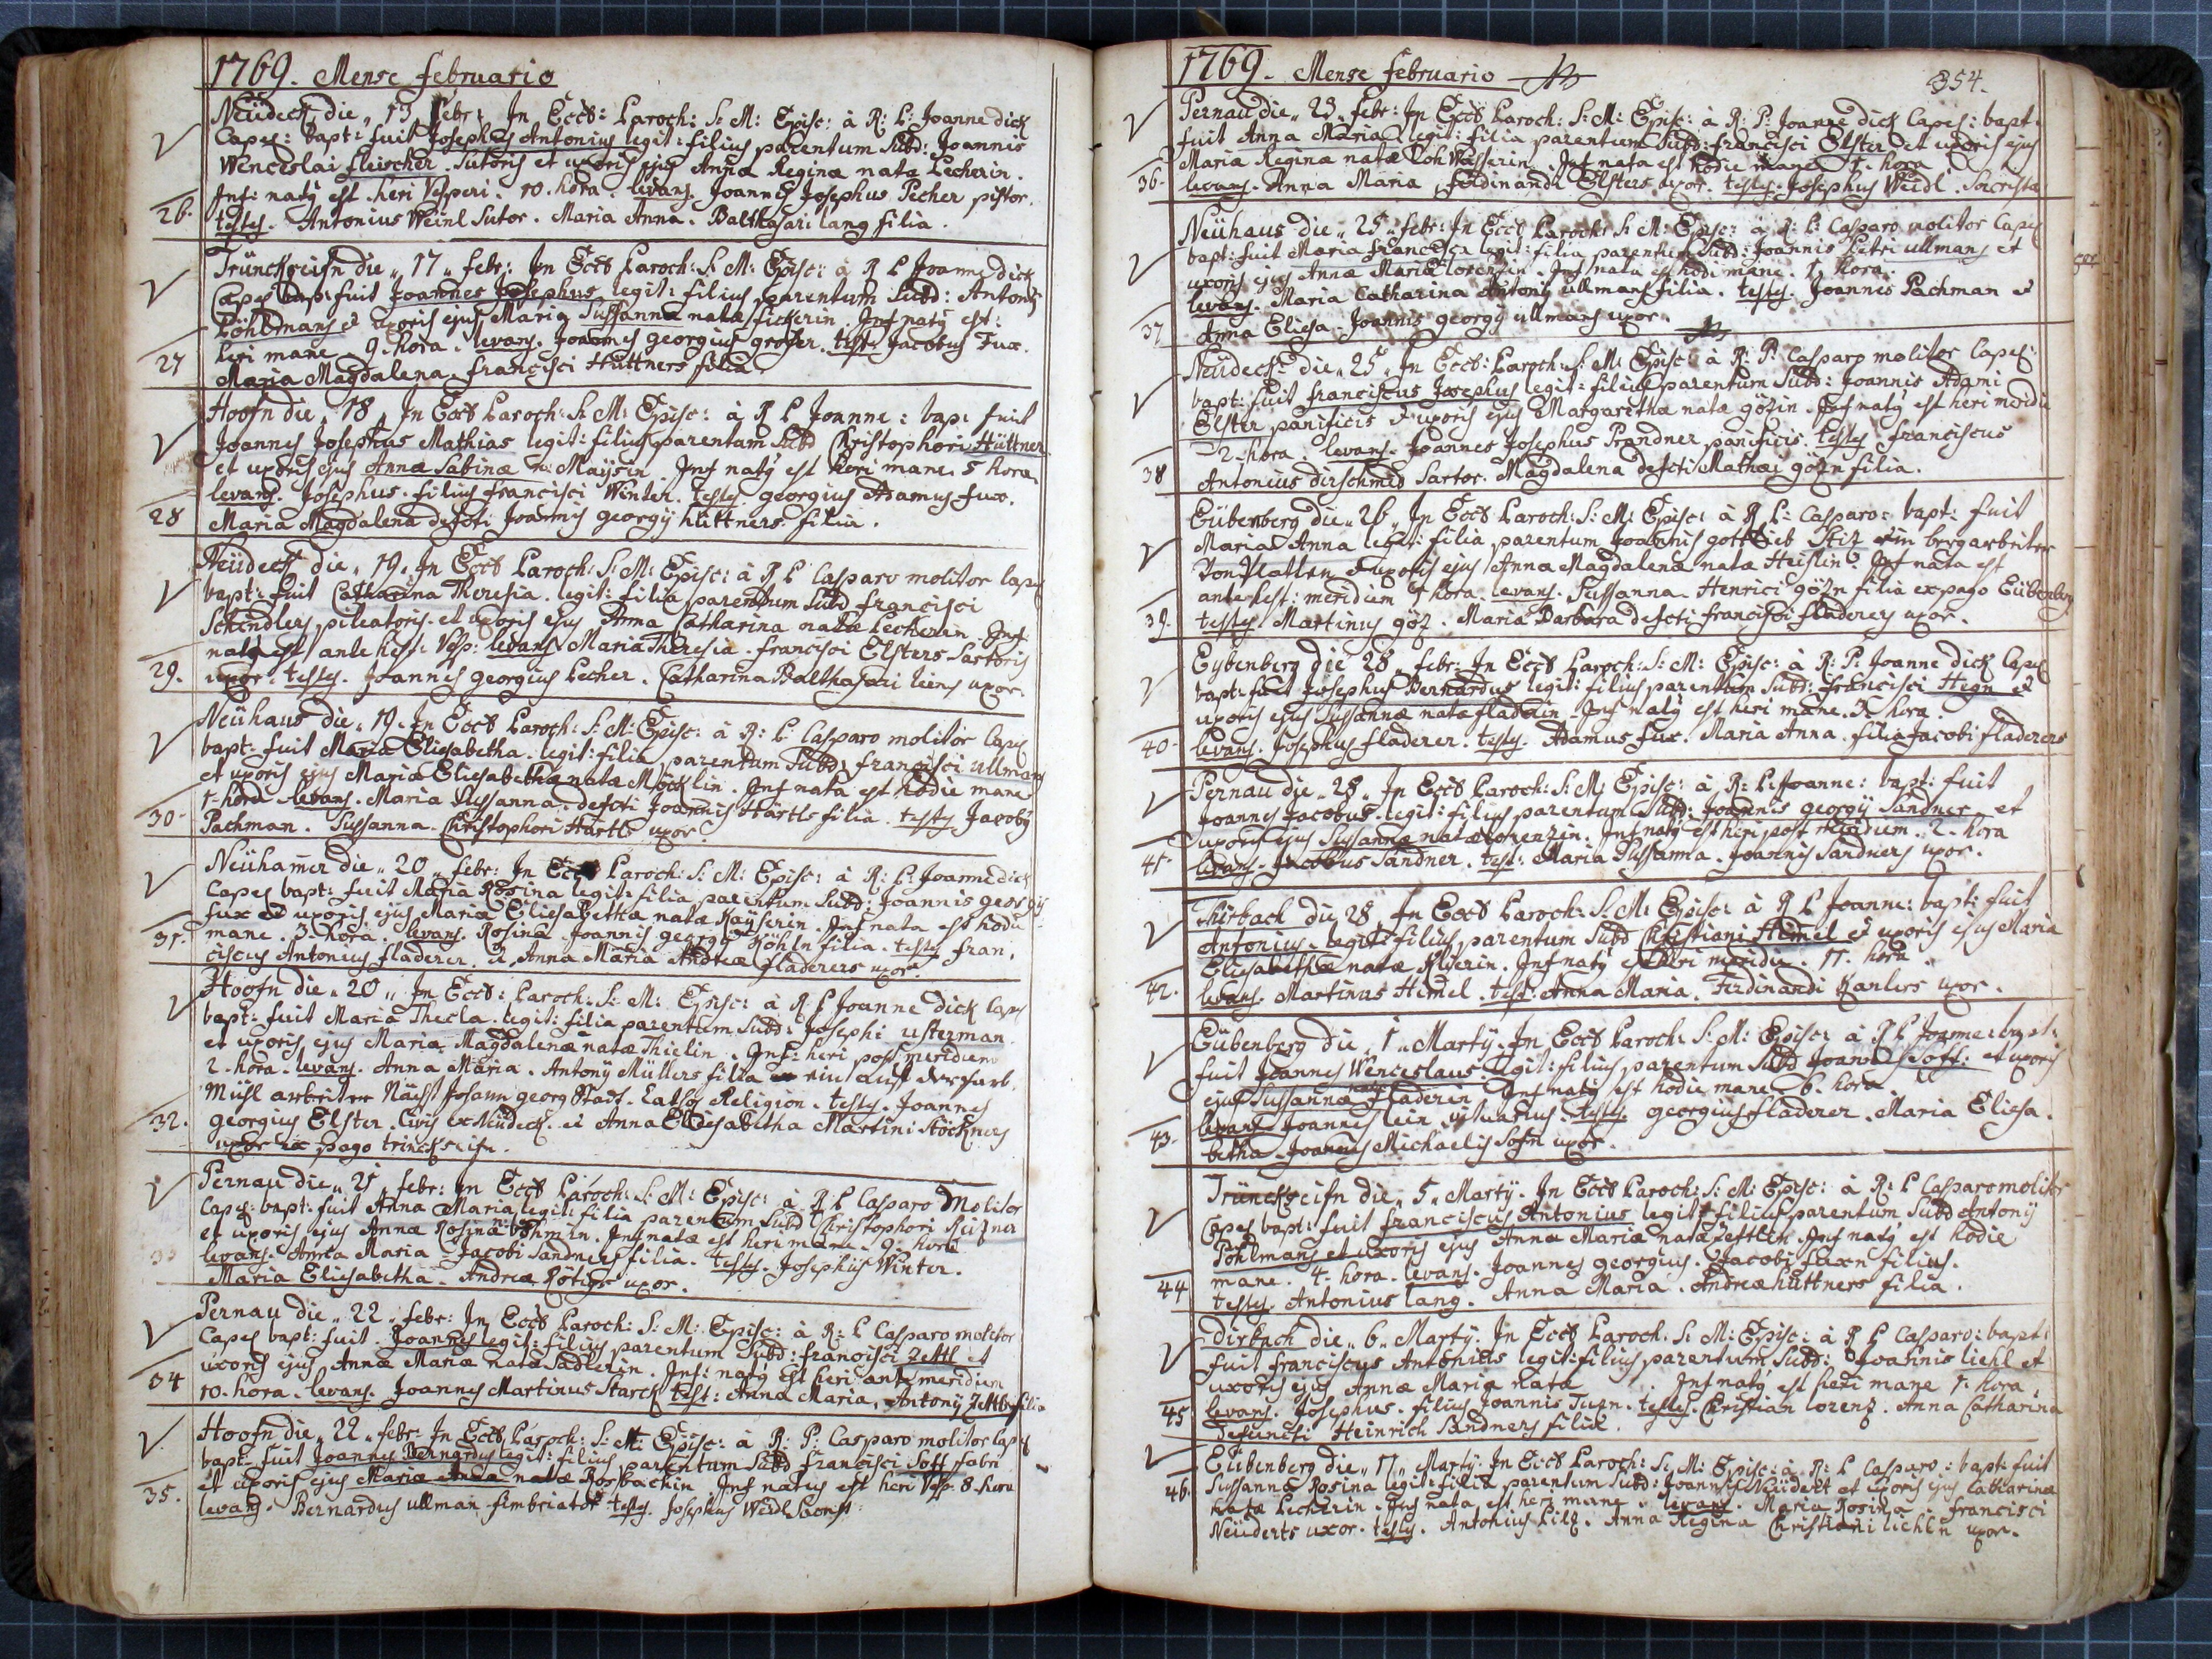 1769. Mense Februario
Neüdeck die " 13 Febr: In Eccl: Paroch: S: M: Episc: à R: P: Joanne dick
Capel: bapt: fuit Josephus Antonius legit: filius parentum Subd: Joannis
Wenceslai fleischer Sutoris et uxoris ejus Anna Regina nata Lecherin.
Inf: natq est heri Vesperi. 10. hora. levans Joannes Josephus Pecher pistor.
26. testes. Antonius Weinl Sutor. Maria Anna. Balthasari lang filia.
die " 17 " febr: In Eccl Paroch: S: M: Episc: à R P Joanne dick
Capel bapt: fuit Joannes Josephus legit: filius parentum Subd: Antonij
Pöhlmans et uxoris ejus Maria Sussanna nata fickerin Inf natq est:
heri mane 9. hora. levans. Joannes georgius groser. test: Jacobus Fux.
27 Maria Magdalena. francisci Hüttners filia.
Hoofn die " 18 " In Eccl Paroch: S: M: Episc: à R P Joanne: bap: fuit
Joannes Josephus Mathias legit: filius parentum Subd Christophori Hüttner
et uxoris ejus Anna Sabina n: Maysin Inf natq est heri mane. 5 hora
levans. Josephus. filius francisci Winter. testes georgius Adamus fux.
28 Maria Magdalena defcti Joannis georgy hüttners filia.
Neüdeck die " 19. In Eccl Paroch: S: M: Episc: à R P Casparo molitor Capel
bapt: fuit Catharina Theresia. legit: filia parentum Subd francisci
Schindlers pileatoris. et uxoris ejus Anna Catharina nata Lecherin. Inf
nata est ante hest: Vesp: levans Maria Theresia. francisci Elsters Sartoris
29. uxor. testes. Joannes georgius Lecher. Catharina Balthasari leins uxor.
Neühaus die " 19. In Eccl Paroch: S: M: Episc: à R: P: Casparo molitor Capel
bapt: fuit Maria Eliesabetha. legit: filia parentum Subd: francisci ullmans
et uxoris ejus Maria Eliesabetha nata Möcklin. Inf nata est hodie mane
1. hora levans. Maria Sussanna. defcti Joannis Härtls filia. testes Jacobq
30 Pachman. Sussanna Christophori Härtls uxor
Neühamer die " 20 " febr: In Eccl Paroch: S: M: Episc: à R: P: Joanne dick
Capel bapt: fuit Maria Rosina legit: filia parentum Subd: Joannis georgij
fux et uxoris ejus Maria Eliesabetha nata Kayserin. Inf nata est hodie
mane. 3. hora. levans. Rosina Joannis georgy Köhln filia. testes fran,
31. ciscus Antonius fladerer. et Anna Maria Andreæ fladerers uxor
Hoofn die " 20 " In Eccl: Paroch: S: M: Episc: à R P Joanne dick Capel
bapt: fuit Maria Thecla. legit: filia parentum Subd: Josephi usterman
et uxoris ejus Maria Magdalena nata Thielin. Inf: heri post meridiem
2. hora. levans. Anna Maria. Antony Müllers filia ein auf der farb,
Mühl arbeiter Nächst Johann georg Stadt. Religion. testes. Joannes
32. georgius Elster. Civis ex Neüdeck. et Anna Eliesabetha Martini Stöckners
uxor ex pago trinckseifn.
Pernau die " 21 " febr: In Eccl Paroch: S: M: Episc: à R P Casparo Molitor
Capel: bapt: fuit Anna Maria legit: filia parentum Subd Christophori Reisner
et uxoris ejus Anna Rosina n: böhmin. Inf nata est heri mane. 9. hora
levans. Anna Maria. Jacobi Sandners filia. testes. Josephus Winter.
33 Maria Eliesabetha. Andreæ Rötigs uxor.
Pernau die " 22 " febr: In Eccl Paroch: S: M: Episc: à R: P Casparo molitor
Capel bapt: fuit. Joannes legit: filius parentum Subd: francisci Zettl et
uxoris ejus Anna Maria nata Sadlerin. Inf: natq est heri ante meridiem
34 10. hora. levans. Joannes Martinus Starck test: Anna Maria. Antonij Zettls filia
Hoofn die " 22 " febr: In Eccl Paroch: S: M: Episc: à R: P: Casparo molitor Capel
bapt: fuit Joannes Bernardus legit: filius parentum Subd francisci Soff fabri
et uxoris ejus Maria Anna nata Rosbachin Inf natus est heri Vesp: 8. hora
35. levans. Bernardus ullman fimbriator testes. Josephus Weidl
1769. Mense februario
354.
Pernau die " 23 " febr: In Eccl Paroch: S: M: Episc: à R: P: Joanne dick Capel: bapt:
fuit Anna Maria legit: filia parentum Subd: francisci Elster et uxoris ejus
Maria Regina nata Inf nata est hodie mane 1. hora
36. levans. Anna Maria, ferdinandi Elsters uxor. testes. Josephus Weidl.
Neühaus die " 25 " febr: In Eccl Paroch: S: M: Episc: à R: P: Casparo molitor Capel
bapt: fuit Maria francisca legit: filia parentum Subd: Joannis Petri ullmans et
uxoris ejus Anna Maria lorenzin. Inf nata est hodie mane. 1. hora.
levans. Maria Catharina Antonij ullmans filia. testes. Joannes Pachman et
37 Anna Eliesa. Joannis georgy ullmans uxor.
Neüdeck die " 25 " In Eccl: Paroch: S: M: Episc: à R: P: Casparo molitor Capel:
bapt: fuit franciscus Josephus legit: filius parentum Subd: Joannis Adami
Elster panificis et uxoris ejus Margaritha nata gözin. Inf natq est heri meridie
2. hora. levans. Joannes Josephus Prandner panificis. testes franciscus
38 Antonius dirschmid Sartor. Magdalena defcti Mathæi gözn filia.
Eübenberg die " 26 " In Eccl Paroch: S: M: Episc: à R P: Casparo: bapt: fuit
Maria Anna legit: filia parentum Joannis gottlieb Stiz ein bergarbeiter
Von Platten et uxoris ejus Anna Magdalena nata Heislin. Inf nata est
ante hest: meridiem 1 hora. levans. Sussanna. Henrici gözn filia ex pago Eübenberg
39. testes. Martinus göz. Maria Barbara defcti francisci fladerers uxor.
Eybenberg die 28 " febr: In Eccl Paroch: S: M: Episc: à R: P: Joanne dick Capel
bapt: fuit Josephus Bernardus legit: filius parentum Subd: francisci Hegn et
uxoris ejus Sussanna nata fladerin. Inf natq est heri mane. hora.
40. levans. Josephus fladerer. testes. Adamus fux. Maria Anna. filia Jacobi fladerers
Pernau die " 28 " In Eccl Paroch: S: M: Episc: à R: P: Joanne: bapt: fuit
Joannes Jacobus. legit: filius parentum Subd: Joannis georgij Sandner et
uxoris ejus Sussanna nata lorenzin. Inf natq est heri post meridiem. 2. hora
41. levans. Jacobus Sandner. test: Maria Sussanna. Joannis Sandners uxor.
Thirbach die 28 " In Eccl Paroch: S: M: Episc: à R P Joanne: bapt: fuit
Antonius. legit: filius parentum Subd Christiani Himel et uxoris ejus Maria
Eliesabetha nata Inf natq est heri meridie. 11. hora.
42. levans. Martinus Himel. test: Anna Maria. Ferdinandi Kanlers uxor.
Eübenberg die " 1 " Marty. In Eccl Paroch: S: M: Episc: à R P Joanne: bapt:
fuit Joannes Wenceslaus. legit: filius parentum Subd Joannis Soff: et uxoris
ejus Sussanna nata fladerin Inf natq est hodie mane 6. hora
levans Joannes lein testes. georgius fladerer. Maria Eliesa.
43. betha. Joannis Michaelis Sofn uxor.
Trünckseifn die " 5 " Marty. In Eccl Paroch: S: M: Episc: à R: P Casparo molitor
Capel bapt: fuit franciscus Antonius legit: filius parentum Subd Antonij
Pöhlmans et uxoris ejus Anna Maria nata Zettlin Inf natq est hodie
mane. 4. hora. levans. Joannes georgius. Jacobi fuxn filius.
44 testes. Antonius lang. Anna Maria. Andreæ hüttners filia.
Dirbach die " 6 " Marty. In Eccl Paroch: S: M: Episc: à R P Casparo: bapt:
fuit franciscus Antonius legit: filius parentum Subd: Joannis liehl et
uxoris ejus Anna Maria nata Inf natq est heri mane 1. hora.
45 levans. Josephus. filius Joannis testes. Christian lorenz. Anna Catharina
defuncti Heinrich Sandners filia.
Eübenberg die " 17 " Marty. In Eccl Paroch: S: M: Episc: à R: P Casparo: bapt: fuit
46. Sussanna Rosina legit: filia parentum Subd: Joannis Neüdert et uxoris ejus Catharina
nata Lecherin. Inf nata est heri mane. levans. Maria Rosina. francisci
Neüderts uxor. testes. Antonius Pilz. Anna Regina Christiani liehln uxor.